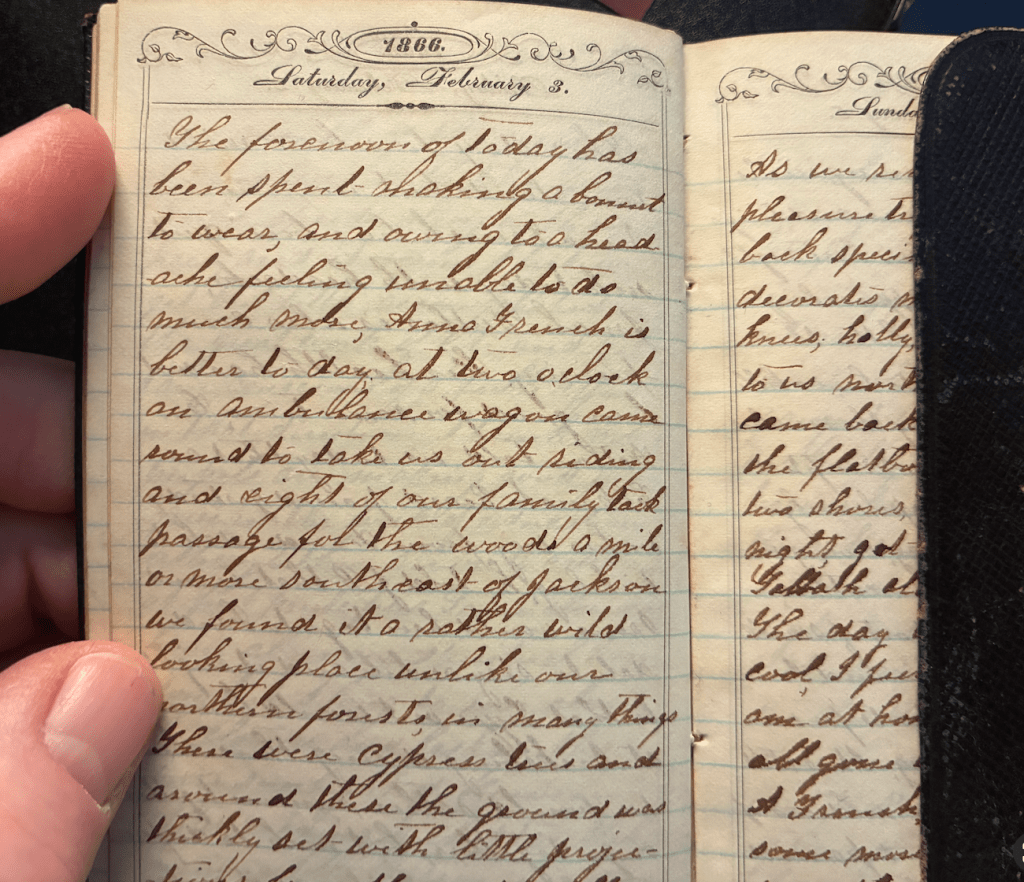 1866.
Saturday, February 3.
The forenoon of today has
been spent making a bonnet
to wear, and owing to a head
ache feeling unable to do
much more, Anna French is
better to day, at two oclock
an ambulance wagon came
round to take us out riding
and eight of our family took
passage for the woods a mile
or more southeast of Jackson
we found it a rather wild
looking place unlike our
northern forests, in many things
There were cypress trees and
around these the ground was
thickly set with little projec-
Sunda
As we
pleasure
back speci
decorate
knees, holly,
to us nort
came back
the flatbo
two shores,
night, got
The day
cool, I fee
am at hom
all gone
A French,
some more